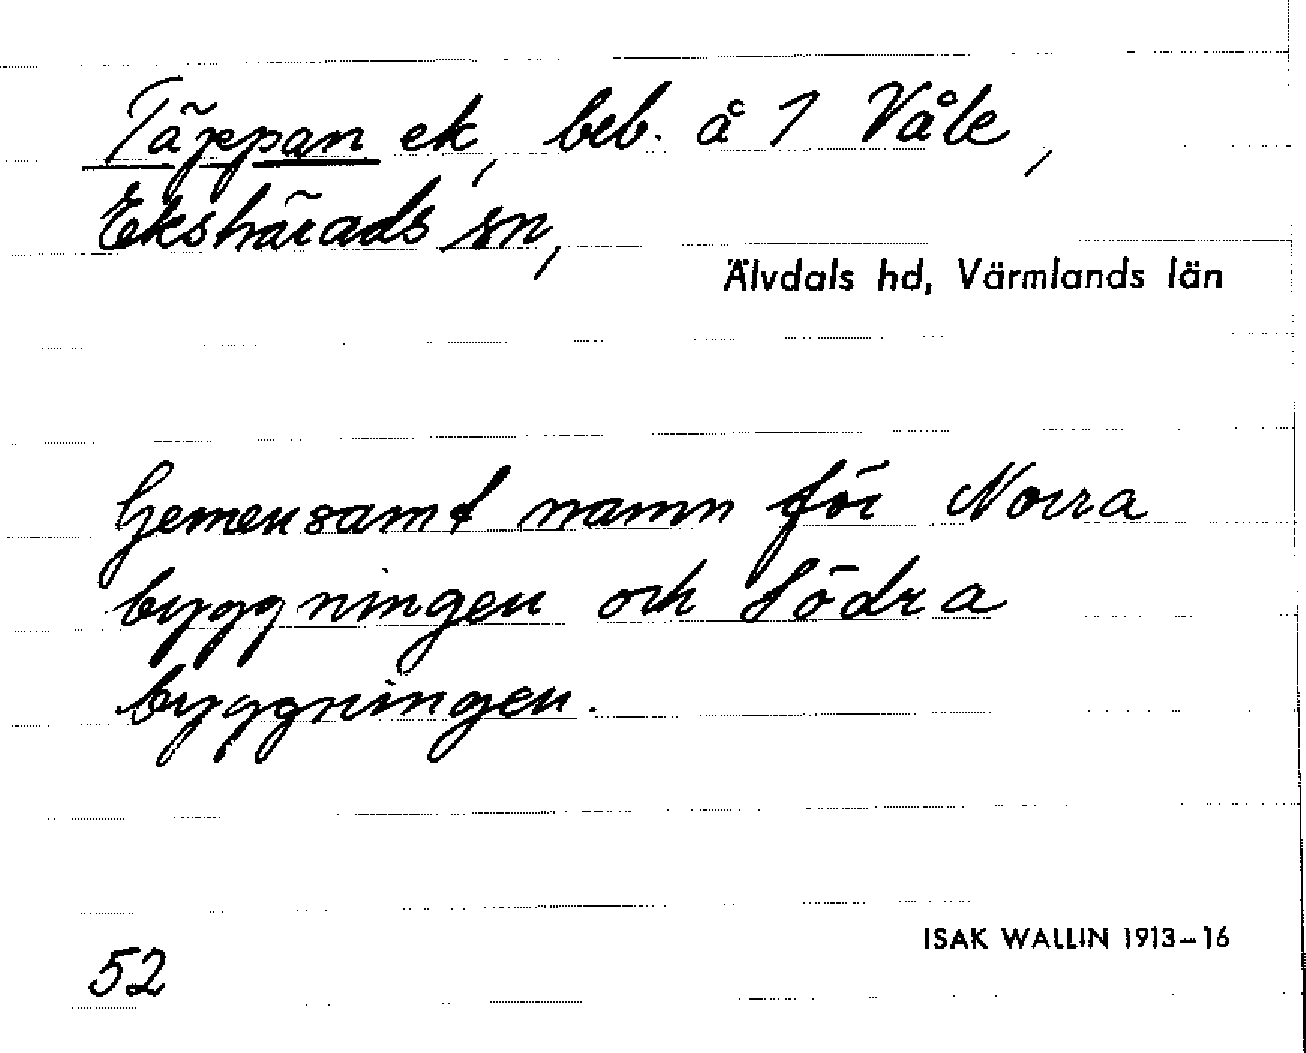 Täppan ek, beb. å 1 Våle,
Ekshärads sn,
Älvdals hd, Värmlands län
Gemensamt namn för Norra
byggningen och Södra
byggningen.
ISAK WALLIN 1913-16
52